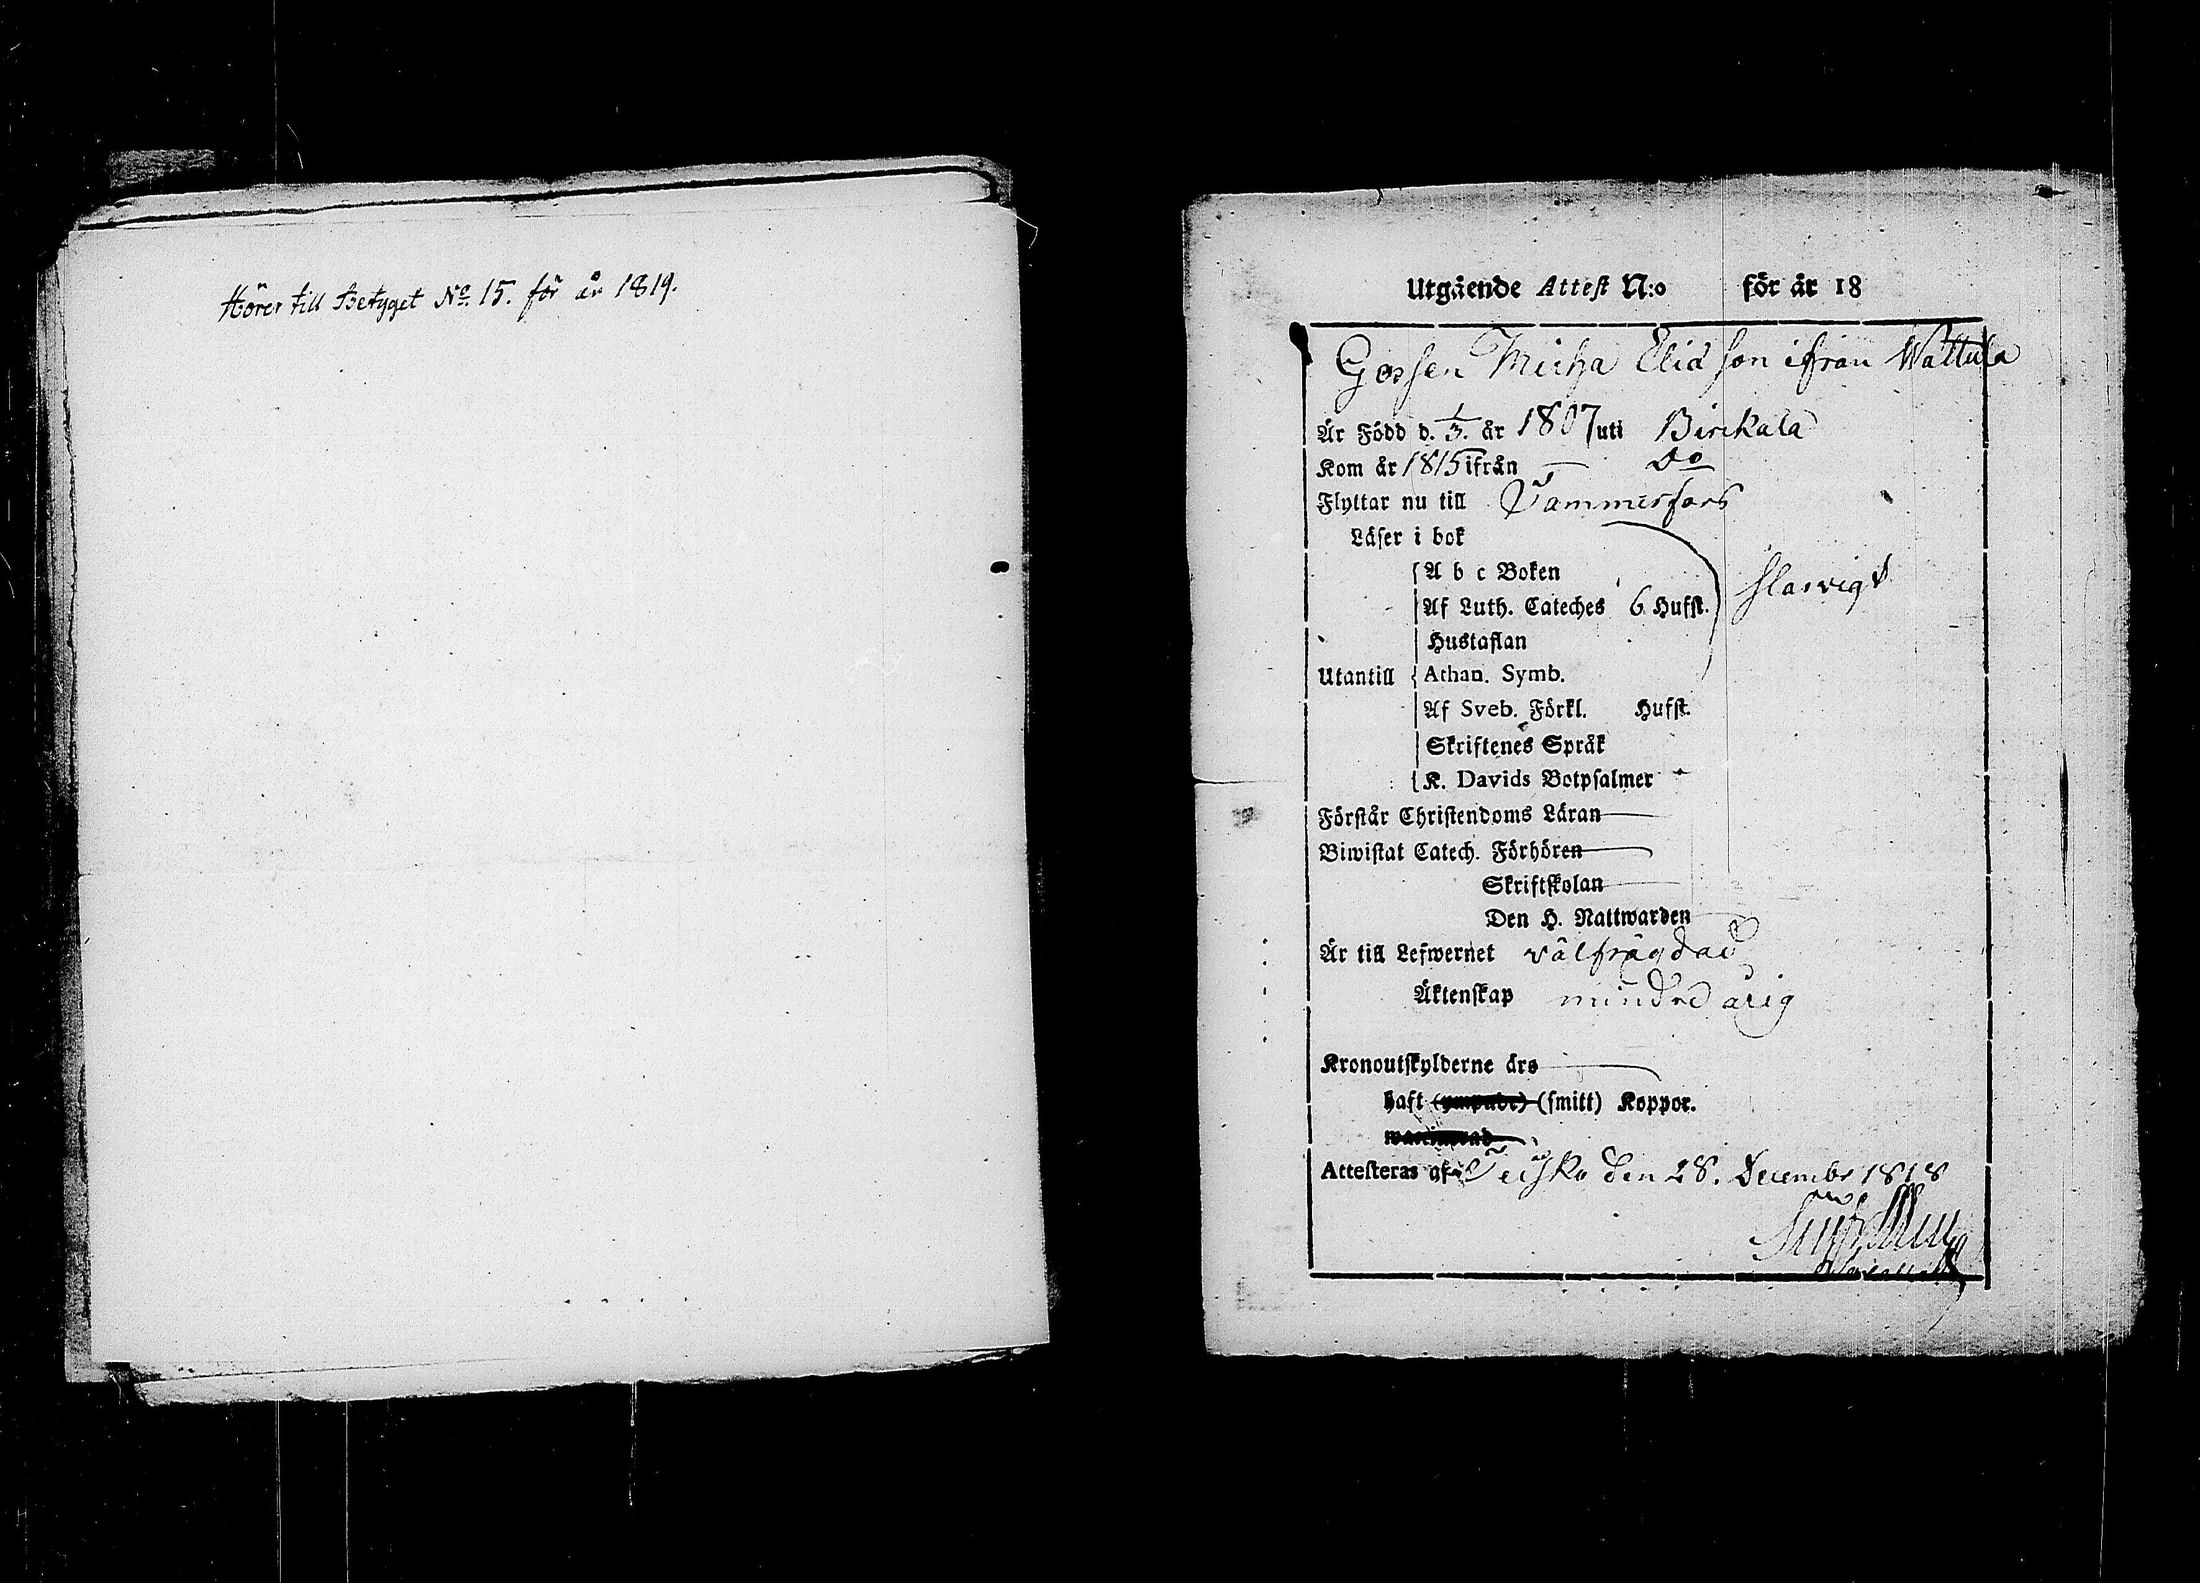 Hörer till Betyget No. 15. för år 1819.
Utgående Attest N:o för år 18
Gossen Micha Elid son ifrån Wattula
Är Född d. 1/3. år 1807 uti Birckala
Kom år 1815 ifrån — Do
Flyttar nu till Tammerfors
Läser i bok
A b c Boken
Af Luth. Cateches 6 Hufst. slarvigt
Hustaflan
Utantill Athan. Symb.
Af Sveb. Förkl. Hufst.
Skriftenes Språk
K. Davids Botpsalmer
Förstår Christendoms Läran —
Biwistat Catech. Förhören —
Skriftskolan —
Den H. Nattwarden
Är till Lefwernet välfrägdad
Äktenskap mindreårig
Kronoutskylderne äro —
haft (ympade) (smitt) Koppor.
Attesteras af Teisko den 28. Decembr 1818